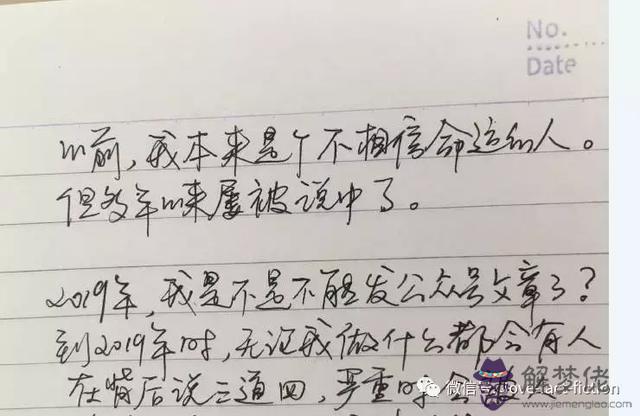 No.
Date
以前,我本来是个不相信命运的人。
但多年以来屡被说中了。
2019年,我是不是不能发公众号文章了?
到2019年时,无论我做什么都会有人
在背后说三道四,严重时会被
微信号:love-art-fiction
解梦佬
www.jiemenglao.com